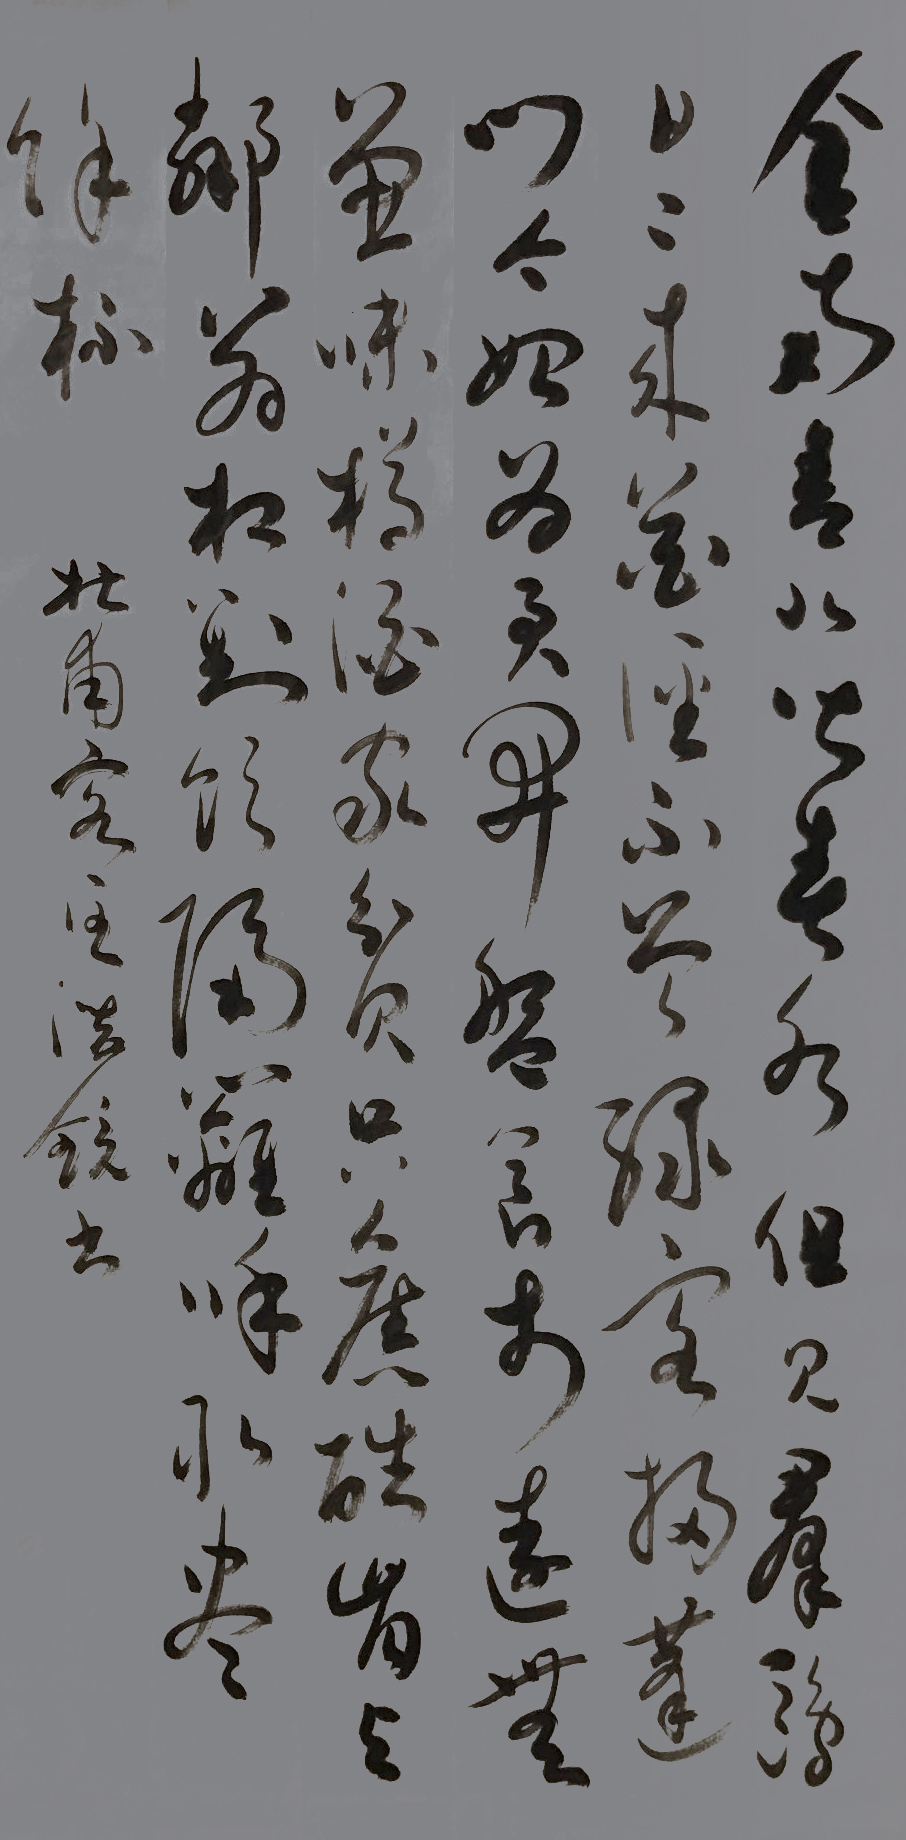 舍南舍北皆春水但見羣鷗
日日來花徑不曾緣客掃蓬
門今始為君開盤飧市遠無
兼味樽酒家貧只舊醅肯与
鄰翁相對飲隔籬呼取盡
餘杯
杜甫客至 鏡书